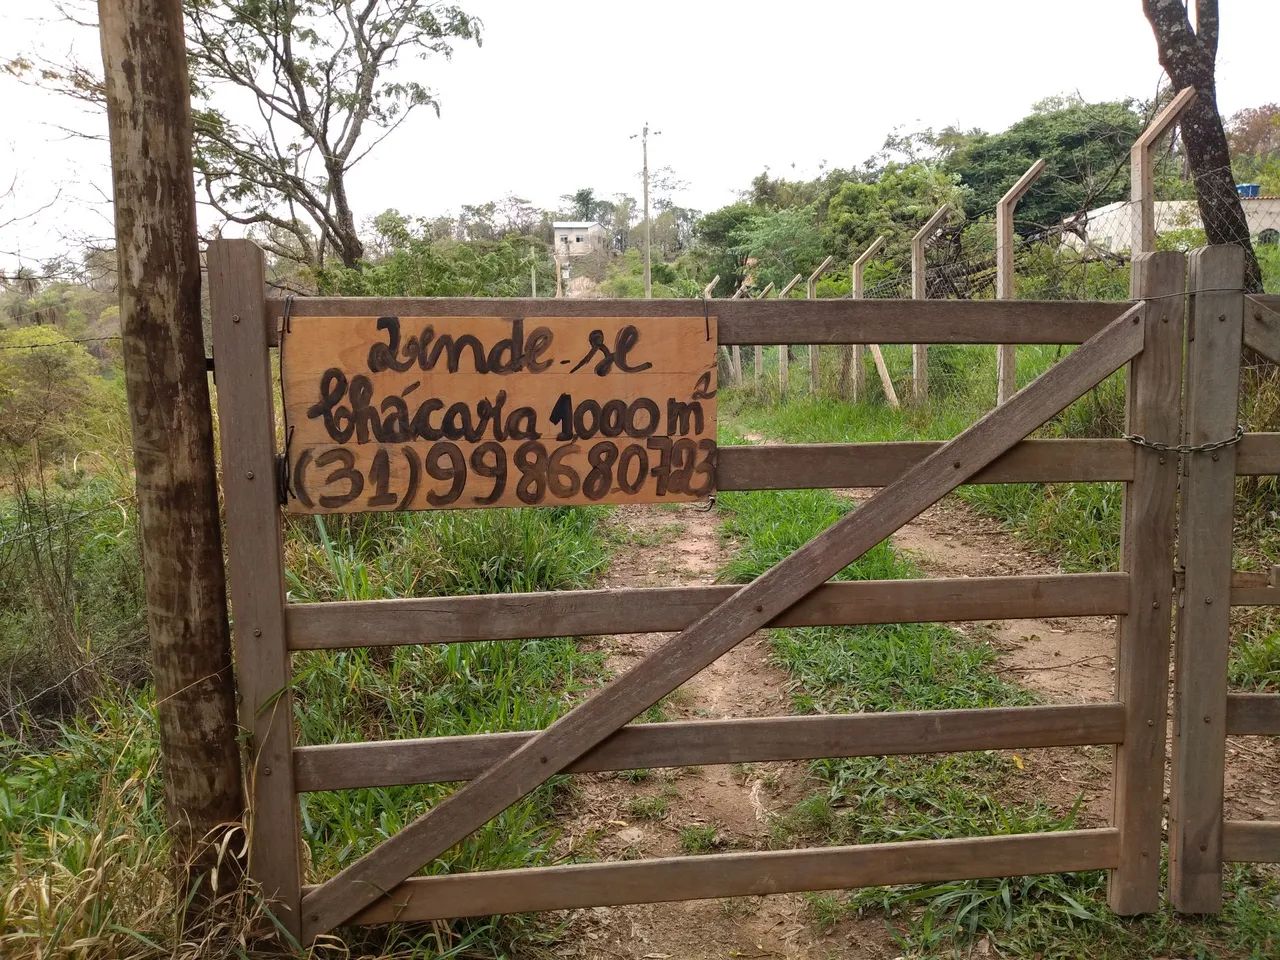 Vende-se
Chácara 1.000 m²
(31) 998680723